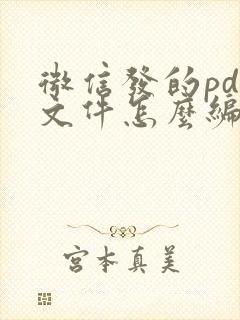 微信發的pd
文件怎麼編
宮本真美